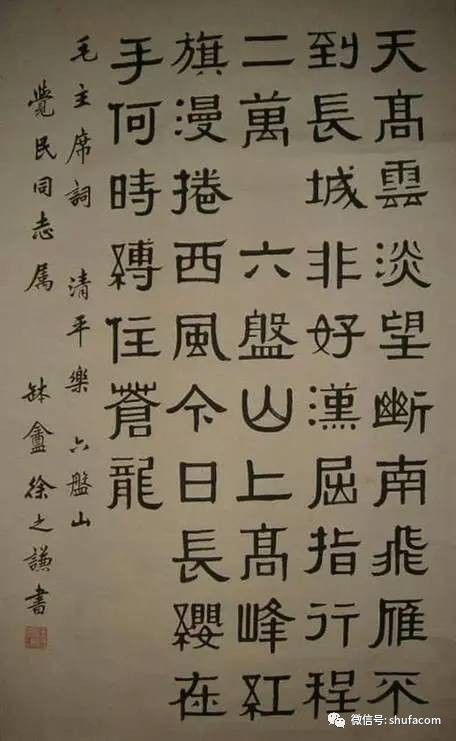 天高雲淡望斷南飛雁不
到長城非好漢屈指行程
二萬 六盤山上高峰紅
旗漫捲西風今日長纓在
手何時縛住蒼龍
毛主席詞 清平樂 六盤山
覺民同志属 缽盦徐之謙書
微信号: shufacom